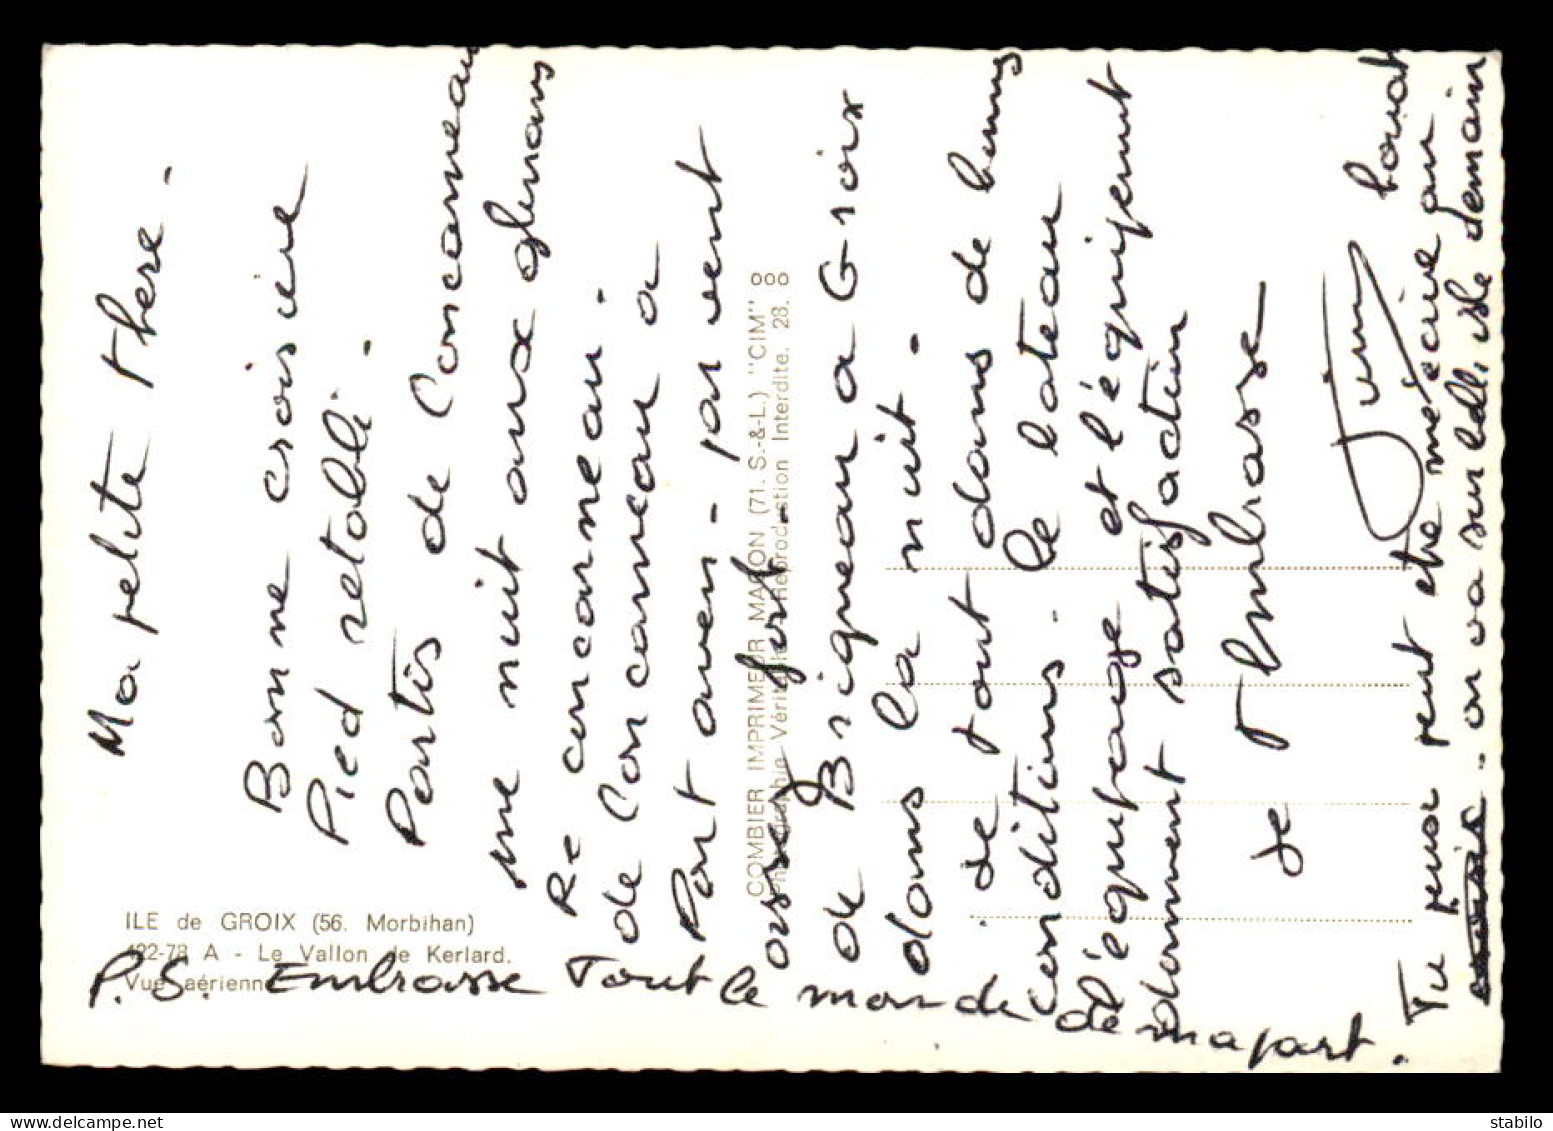 Ma petite there -
Bonne croisiere
Pied retabli.
Partis de Concarneau
une nuit aux glenans
Re concarneau.
de Concarneau a
Port aven - par vent
assez fort.
de Brigneau a Groix
dans la nuit.
de tout dans de bonnes
conditions. le bateau
l'équipage et l'équipement
donnent satisfaction
je t'embrasse
Tu peux peut etre m'ecrire au
on va sur belle isle demain
P.S. Embrasse Tout le monde
de ma part.
ILE de GROIX (56. Morbihan)
422-78 A - Le Vallon de Kerlard.
Vue aérienne
COMBIER IMPRIMEUR MACON (71. S.-&-L.) "CIM"
Photographie Véritable Reproduction Interdite. 28.
stabilo